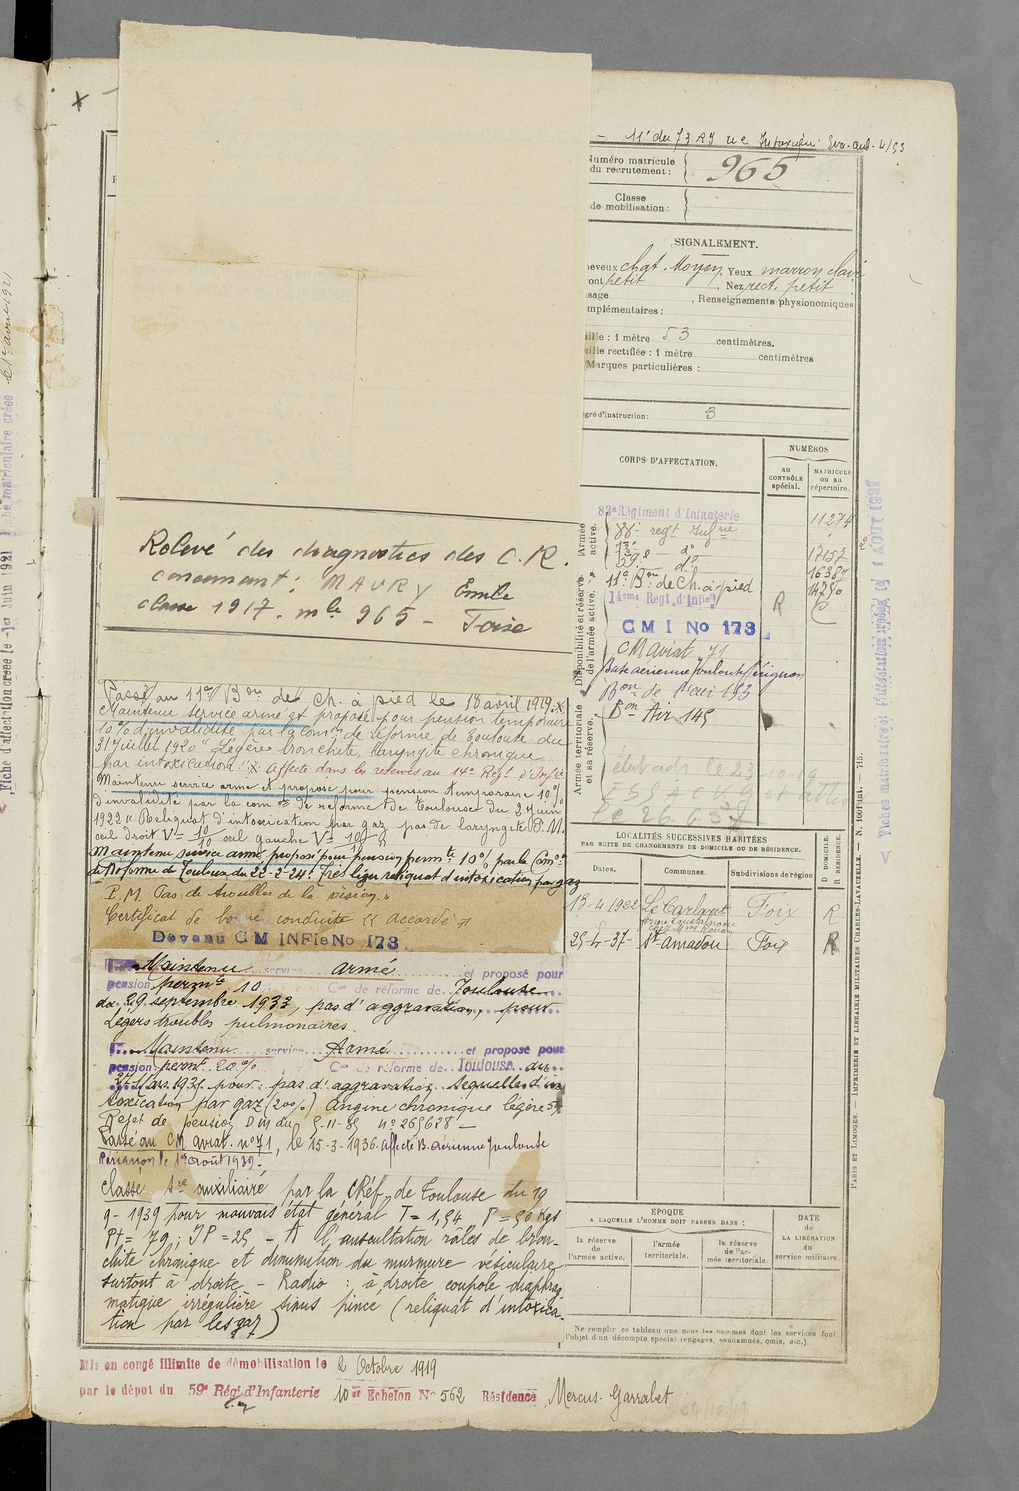 11e du 73 RI
Numéro matricule
du recrutement :
965
Classe
de mobilisation :
SIGNALEMENT.
heveux chat. Moyen. Yeux marron clair
ront petit. Nez rect. petit
sage , Renseignements physionomiques
mplémentaires :
aille : 1 mètre 53 centimètres.
aille rectifiée : 1 mètre centimètres
Marques particulières :
gré d'instruction : 3
CORPS D'AFFECTATION.
NUMÉROS
AU CONTRÔLE spécial.
MATRICULE OU AU répertoire.
Armée active.
Disponibilité et réserve de l'armée active.
Armée territoriale et sa réserve.
83e Régiment d'Infanterie 11274
88e regt Infrie
59e do
11e Bon de Ch. à pied
14eme Regt d'Infie R
CMI No 173
CM aviat 71
Base aérienne Toulouse Pérignon
Bon de l'air 153
Bon Air 145
Relevé des diagnostics des C.R.
concernant : MAURY Emile
classe 1917. mle 965 - Foix
Passé au 11e Bon de Ch. à pied le 18 avril 1919. X
Maintenu service armé et proposé pour pension temporaire
10% d'invalidité par la comon de réforme de Toulouse du
31 juillet 1920 "Légère bronchite, laryngite chronique
par intoxication". X Affecté dans les réserves au 14e Régt d'Infie
Maintenu service armé et proposé pour pension temporaire 10%
d'invalidité par la comon de réforme de Toulouse du 2 juin
1922 " Reliquat d'intoxication par gaz pas de laryngite P.M.
oeil droit V = 10/10 oeil gauche V = 10/10 "
Maintenu service armé proposé pour pension permte 10% par la Comon
de Réforme de Toulouse du 22-2-24. Très léger reliquat d'intoxication par gaz
P.M. Pas de troubles de la vision "
Certificat de bonne conduite " accordé "
Devenu CM INFie No 173
Maintenu service armé et proposé pour
pension permte 10 Con de réforme de Toulouse
du 29 septembre 1933, pas d'aggravation, pour
Légers troubles pulmonaires.
Maintenu service Armé et proposé pour
pension permte 20% Con de réforme de Toulouse du
27 Mars 1935 pour : pas d'aggravation. Sequelles d'in
toxication par gaz (20%) Angine chronique légère 5%
Rejet de pension D in du 5-11-35 No 265628 -
Passé au CM aviat. no 71, le 15-3-1936. Aff. de B. Aérienne Toulouse
Pérignon le 1er Août 1939.
Classé sce auxiliaire par la CRéf de Toulouse du 19
9-1939 pour mauvais état général T = 1,54 P = 50 Kgs
Pt = 79 ; IP = 25 - A l'auscultation râles de bron-
chite chronique et diminution du murmure vésiculaire
surtout à droite - Radio : à droite coupole diaphrag
matique irrégulière sinus pince (reliquat d'intoxica-
tion par les gaz)
LOCALITÉS SUCCESSIVES HABITÉES
PAR SUITE DE CHANGEMENTS DE DOMICILE OU DE RÉSIDENCE.
Dates. Communes. Subdivisions de région D DOMICILE. R RÉSIDENCE.
13-4-1922 Le Carlaret Foix R
25-4-37- St Amadou Foix R
ÉPOQUE
A LAQUELLE L'HOMME DOIT PASSER DANS :
la réserve de l'armée active.
l'armée territoriale.
la réserve de l'armée territoriale.
DATE
de
LA LIBÉRATION
du
service militaire.
Ne remplir ce tableau que pour les hommes dont les services font
l'objet d'un décompte spécial (engagés, condamnés, omis, etc.).
Mis en congé illimité de démobilisation le 2 Octobre 1919
par le dépôt du 59e Régt d'Infanterie 10e Echelon No 562 Résidence Mercus-Garrabet
PARIS ET LIMOGES. — IMPRIMERIE ET LIBRAIRIE MILITAIRES CHARLES-LAVAUZELLE. — N. 166 / int. — 715.